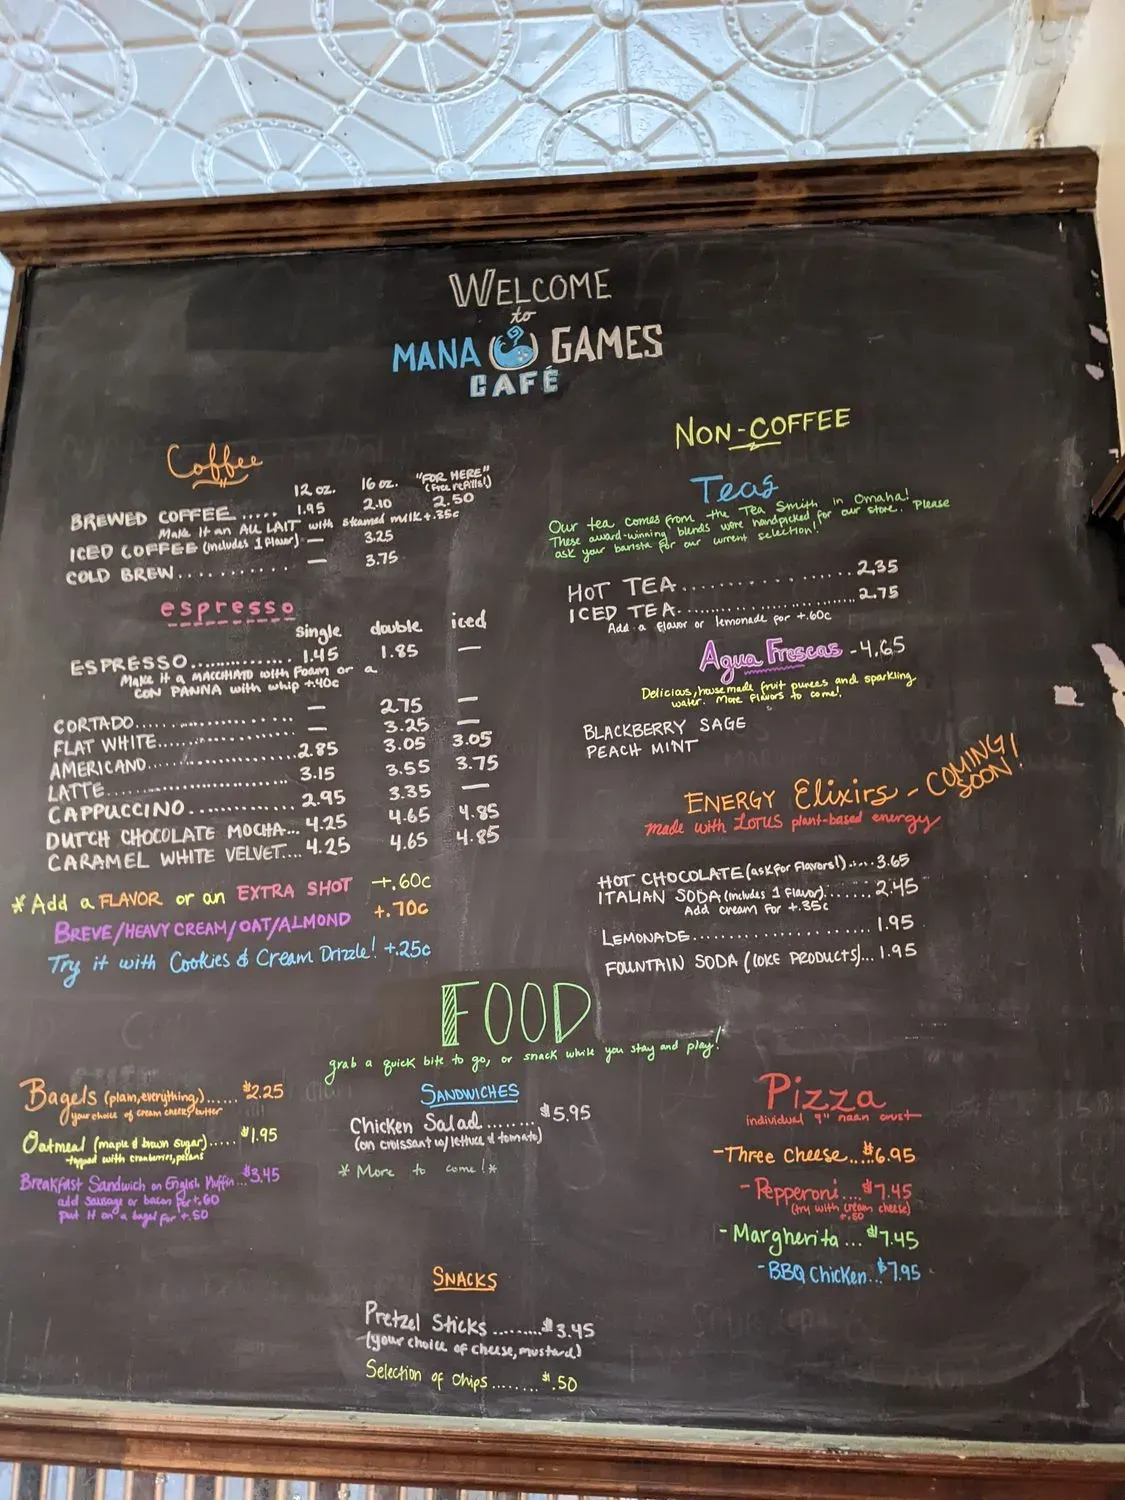 WELCOME
to
MANA GAMES
CAFÉ
Coffee
12 oz. 16 oz. "FOR HERE"
(free refills!)
BREWED COFFEE ..... 1.95 2.10 2.50
Make it an AU LAIT with steamed milk +.35c
ICED COFFEE (includes 1 flavor) — 3.25
COLD BREW........... — 3.75
espresso
single double iced
ESPRESSO.............. 1.45 1.85 —
Make it a MACCHIATO with foam or a
CON PANNA with whip +.40c
CORTADO...................... — 2.75 —
FLAT WHITE.................. — 3.25 —
AMERICANO.................. 2.85 3.05 3.05
LATTE......................... 3.15 3.55 3.75
CAPPUCCINO............... 2.95 3.35 —
DUTCH CHOCOLATE MOCHA... 4.25 4.65 4.85
CARAMEL WHITE VELVET.... 4.25 4.65 4.85
*Add a FLAVOR or an EXTRA SHOT +.60c
BREVE/HEAVY CREAM/OAT/ALMOND +.70c
Try it with Cookies & Cream Drizzle! +.25c
NON-COFFEE
Teas
Our tea comes from the Tea Smith in Omaha!
These award-winning blends were handpicked for our store. Please
ask your barista for our current selection!
HOT TEA.................... 2.35
ICED TEA.................... 2.75
Add a flavor or lemonade for +.60c
Agua Frescas - 4.65
Delicious, housemade fruit purees and sparkling
water. More flavors to come!
BLACKBERRY SAGE
PEACH MINT
ENERGY Elixirs - COMING SOON!
made with LOTUS plant-based energy
HOT CHOCOLATE (ask for flavors!)..... 3.65
ITALIAN SODA (includes 1 flavor)....... 2.45
Add cream for +.35c
LEMONADE...................... 1.95
FOUNTAIN SODA (COKE PRODUCTS)... 1.95
FOOD
grab a quick bite to go, or snack while you stay and play!
Bagels (plain, everything,)...... $2.25
your choice of cream cheese, butter
Oatmeal (maple & brown sugar)..... $1.95
-topped with cranberries, pecans
Breakfast Sandwich on English Muffin... $3.45
add sausage or bacon for +.60
put it on a bagel for +.50
SANDWICHES
Chicken Salad ........ $5.95
(on croissant w/ lettuce & tomato)
* More to come! *
SNACKS
Pretzel Sticks ......... $3.45
(your choice of cheese, mustard)
Selection of chips........ $.50
Pizza
individual 9" naan crust
-Three Cheese... $6.95
- Pepperoni.... $7.45
(try with cream cheese)
+.50
- Margherita ... $7.45
- BBQ Chicken... $7.95